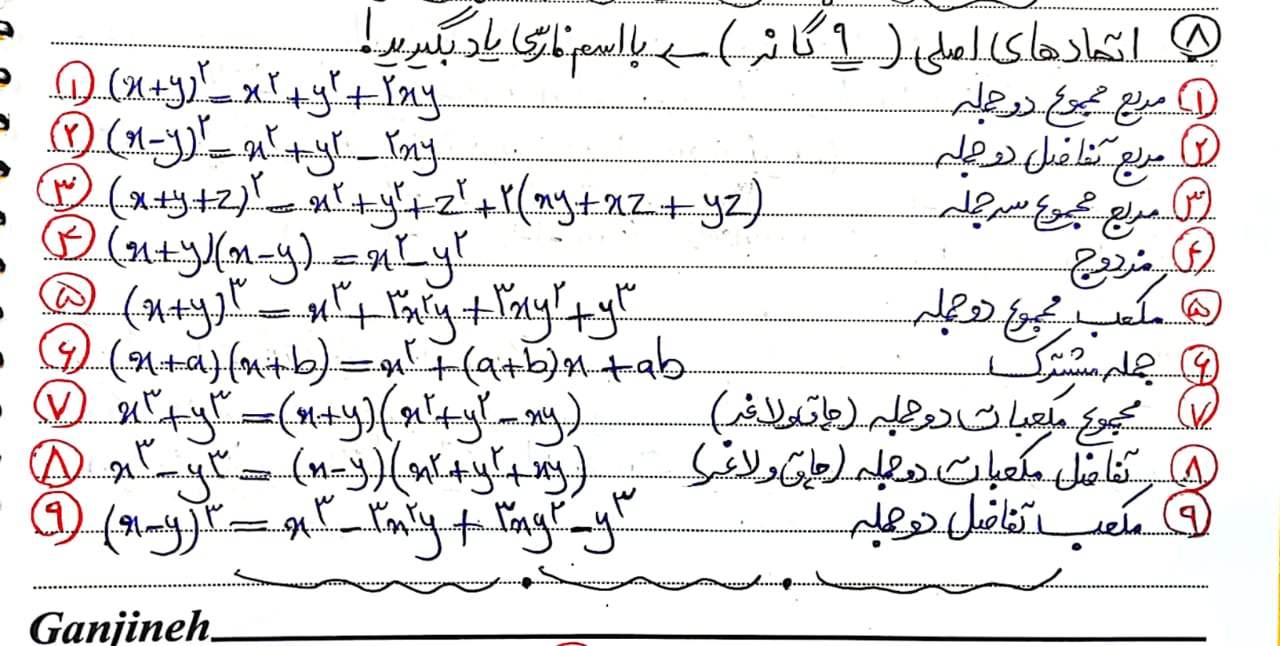 ۸ اتحادهای اصلی (۹ گانه) ← با اسم فارسی یاد بگیرید!
۱ مربع مجموع دو جمله ۱ (x+y)^۲ = x^۲ + y^۲ + ۲xy
۲ مربع تفاضل دو جمله ۲ (x-y)^۲ = x^۲ + y^۲ - ۲xy
۳ مربع مجموع سه جمله ۳ (x+y+z)^۲ = x^۲ + y^۲ + z^۲ + ۲(xy + xz + yz)
۴ مزدوج ۴ (x+y)(x-y) = x^۲ - y^۲
۵ مکعب مجموع دو جمله ۵ (x+y)^۳ = x^۳ + ۳x^۲y + ۳xy^۲ + y^۳
۶ جمله مشترک ۶ (x+a)(x+b) = x^۲ + (a+b)x + ab
۷ مجموع مکعبات دو جمله (چاق و لاغر) ۷ x^۳ + y^۳ = (x+y)(x^۲ + y^۲ - xy)
۸ تفاضل مکعبات دو جمله (چاق و لاغر) ۸ x^۳ - y^۳ = (x-y)(x^۲ + y^۲ + xy)
۹ مکعب تفاضل دو جمله ۹ (x-y)^۳ = x^۳ - ۳x^۲y + ۳xy^۲ - y^۳
Ganjineh